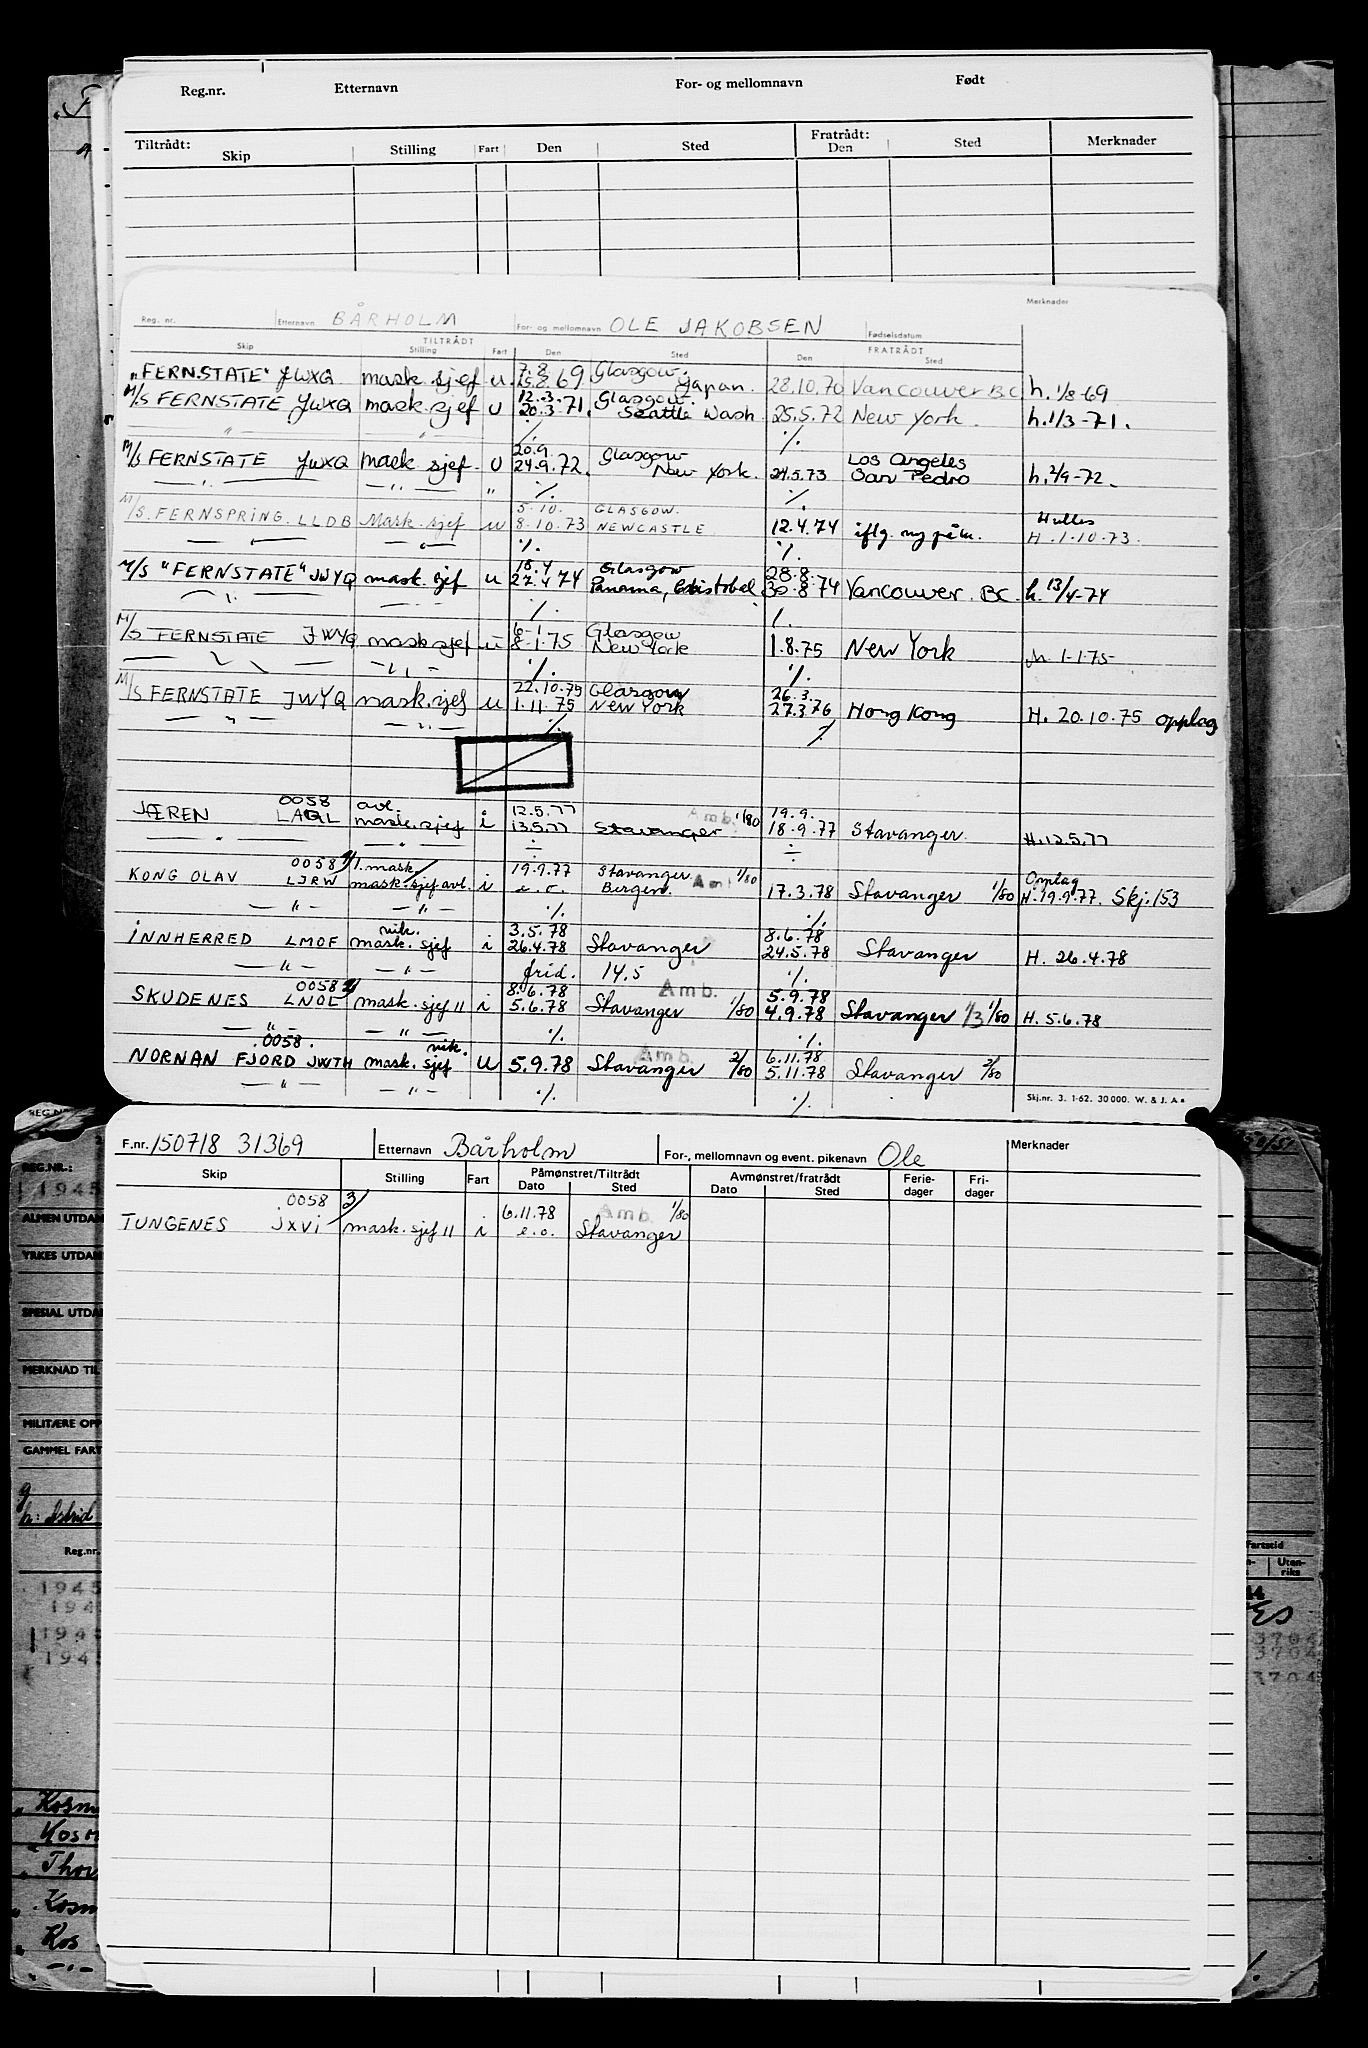 Reg.nr. Etternavn For- og mellomnavn Født
Tiltrådt: Skip Stilling Fart Den Sted Fratrådt: Den Sted Merknader
Merknader
Reg. nr. Etternavn BÅRHOLM For- og mellomnavn OLE JAKOBSEN Fødselsdatum
TILTRÅDT FRATRÅDT
Skip Stilling Fart Den Sted Den Sted
7.8. Glasgow.
"FERNSTATE" JWXQ mask. sjef u. 25.8.69 Japan. 28.10.70 Vancouver B.C. h. 1/8-69
12.3. Glasgow.
M/S FERNSTATE JWXQ mask. sjef u 20.3.71. Seattle Wash. 25.5.72 New York. h. 1/3-71.
— " — — " — ·/. ·/.
20.9. Glasgow Los Angeles
M/S FERNSTATE JWXQ mask. sjef. U 24.9.72. New York. 24.5.73 San Pedro h. 2/9-72.
— " — — " — " ·/. ·/.
5.10. GLASGOW. Hulles
M/S. FERNSPRING. LLDB Mask. sjef u 8.10.73 NEWCASTLE 12.4.74 iflg. ny påm. H. 1.10.73.
— " — — " — ·/. ·/.
18.4 Glasgow 28.8.
M/S "FERNSTATE" JWYQ mask. sjef u 27.4 74 Panama, Cristobal 30.8.74 Vancouver. BC. h. 13/4-74
— " — — " — ·/. ·/.
6-1. Glasgow
M/S FERNSTATE JWYQ mask sjef u 8-1.75 New York 1.8.75 New York M 1-1.75-
— " — — " — ·/. ·/.
22.10.75 Glasgow 26.3.
M/S FERNSTATE JWYQ mask. sjef u 1.11.75 New York 27.3.76 Hong Kong H. 20.10.75 opplag
— " — — " — ·/. ·/.
0058 avl. 12.5.77 Amb. 1/80 19.9.
JÆREN LAQL mask. sjef i 13.5.77 Stavanger 18.9.77 Stavanger. H. 12.5.77
— " — — " — ÷ ÷
0058 2/ 1. mask/ 19.9.77 Stavanger. 1/80 Opplag
KONG OLAV LJRW mask. sjef avl. i e.o. Bergen. Amb 17.3.78 Stavanger 1/80 H. 19.9.77. Skj. 153
— " — — " — ·/. ·/.
vik. 3.5.78 8.6.78
INNHERRED LMOF mask. sjef i 26.4.78 Stavanger 24.5.78 Stavanger H. 26.4.78
— " — — " — frid. 14.5 ·/.
0058 2/ 8.6.78 Amb. 5.9.78
SKUDENES LNOL mask. sjef II i 5.6.78 Stavanger 1/80 4.9.78 Stavanger 1/3 1/80 H. 5.6.78
— " — — " — ·/. ·/.
.0058. vik. Amb. 6.11.78
NORNAN FJORD JWTH mask. sjef U 5.9.78 Stavanger 2/80 5.11.78 Stavanger 2/80
— " — — " — ·/. ·/.
Skj.nr. 3. 1-62. 30 000. W. & J. A s
F.nr. 150718 31369 Etternavn Bårholm For-, mellomnavn og event. pikenavn Ole Merknader
Skip Stilling Fart Påmønstret/Tiltrådt Avmønstret/fratrådt Ferie- Fri-
Dato Sted Dato Sted dager dager
0058 3/ 6.11.78 Amb. 1/80
TUNGENES JXVI mask. sjef II i e.o. Stavanger
REG.NR.:
1945
ALMEN UTDAN
YRKES UTDAN
SPESIAL UTDA
MERKNAD TIL
MILITÆRE OPP
GAMMEL FART
Reg.nr.
Fartstid
Uten-
riks
1945
194
1945
1945
3704
3704
3704
Kosm
Kosm
Thor
Kosm
Kos